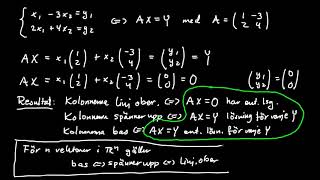 { x₁ - 3x₂ = y₁
2x₁ + 4x₂ = y₂ ⇔ AX = Y med A = (1 -3 / 2 4)
AX = x₁ (1 / 2) + x₂ (-3 / 4) = (y₁ / y₂) = Y
AX = x₁ (1 / 2) + x₂ (-3 / 4) = (0 / 0) = 0 (y₁ / y₂) = (0 / 0)
Resultat: Kolonnerna linj ober. ⇔ AX = 0 har ent. lsg.
Kolonnerna spänner upp ⇔ AX = Y lösning för varje Y
Kolonnerna bas ⇔ AX = Y ent. lösn. för varje Y
För n vektorer i ℝⁿ gäller
bas ⇔ spänner upp ⇔ linj. ober